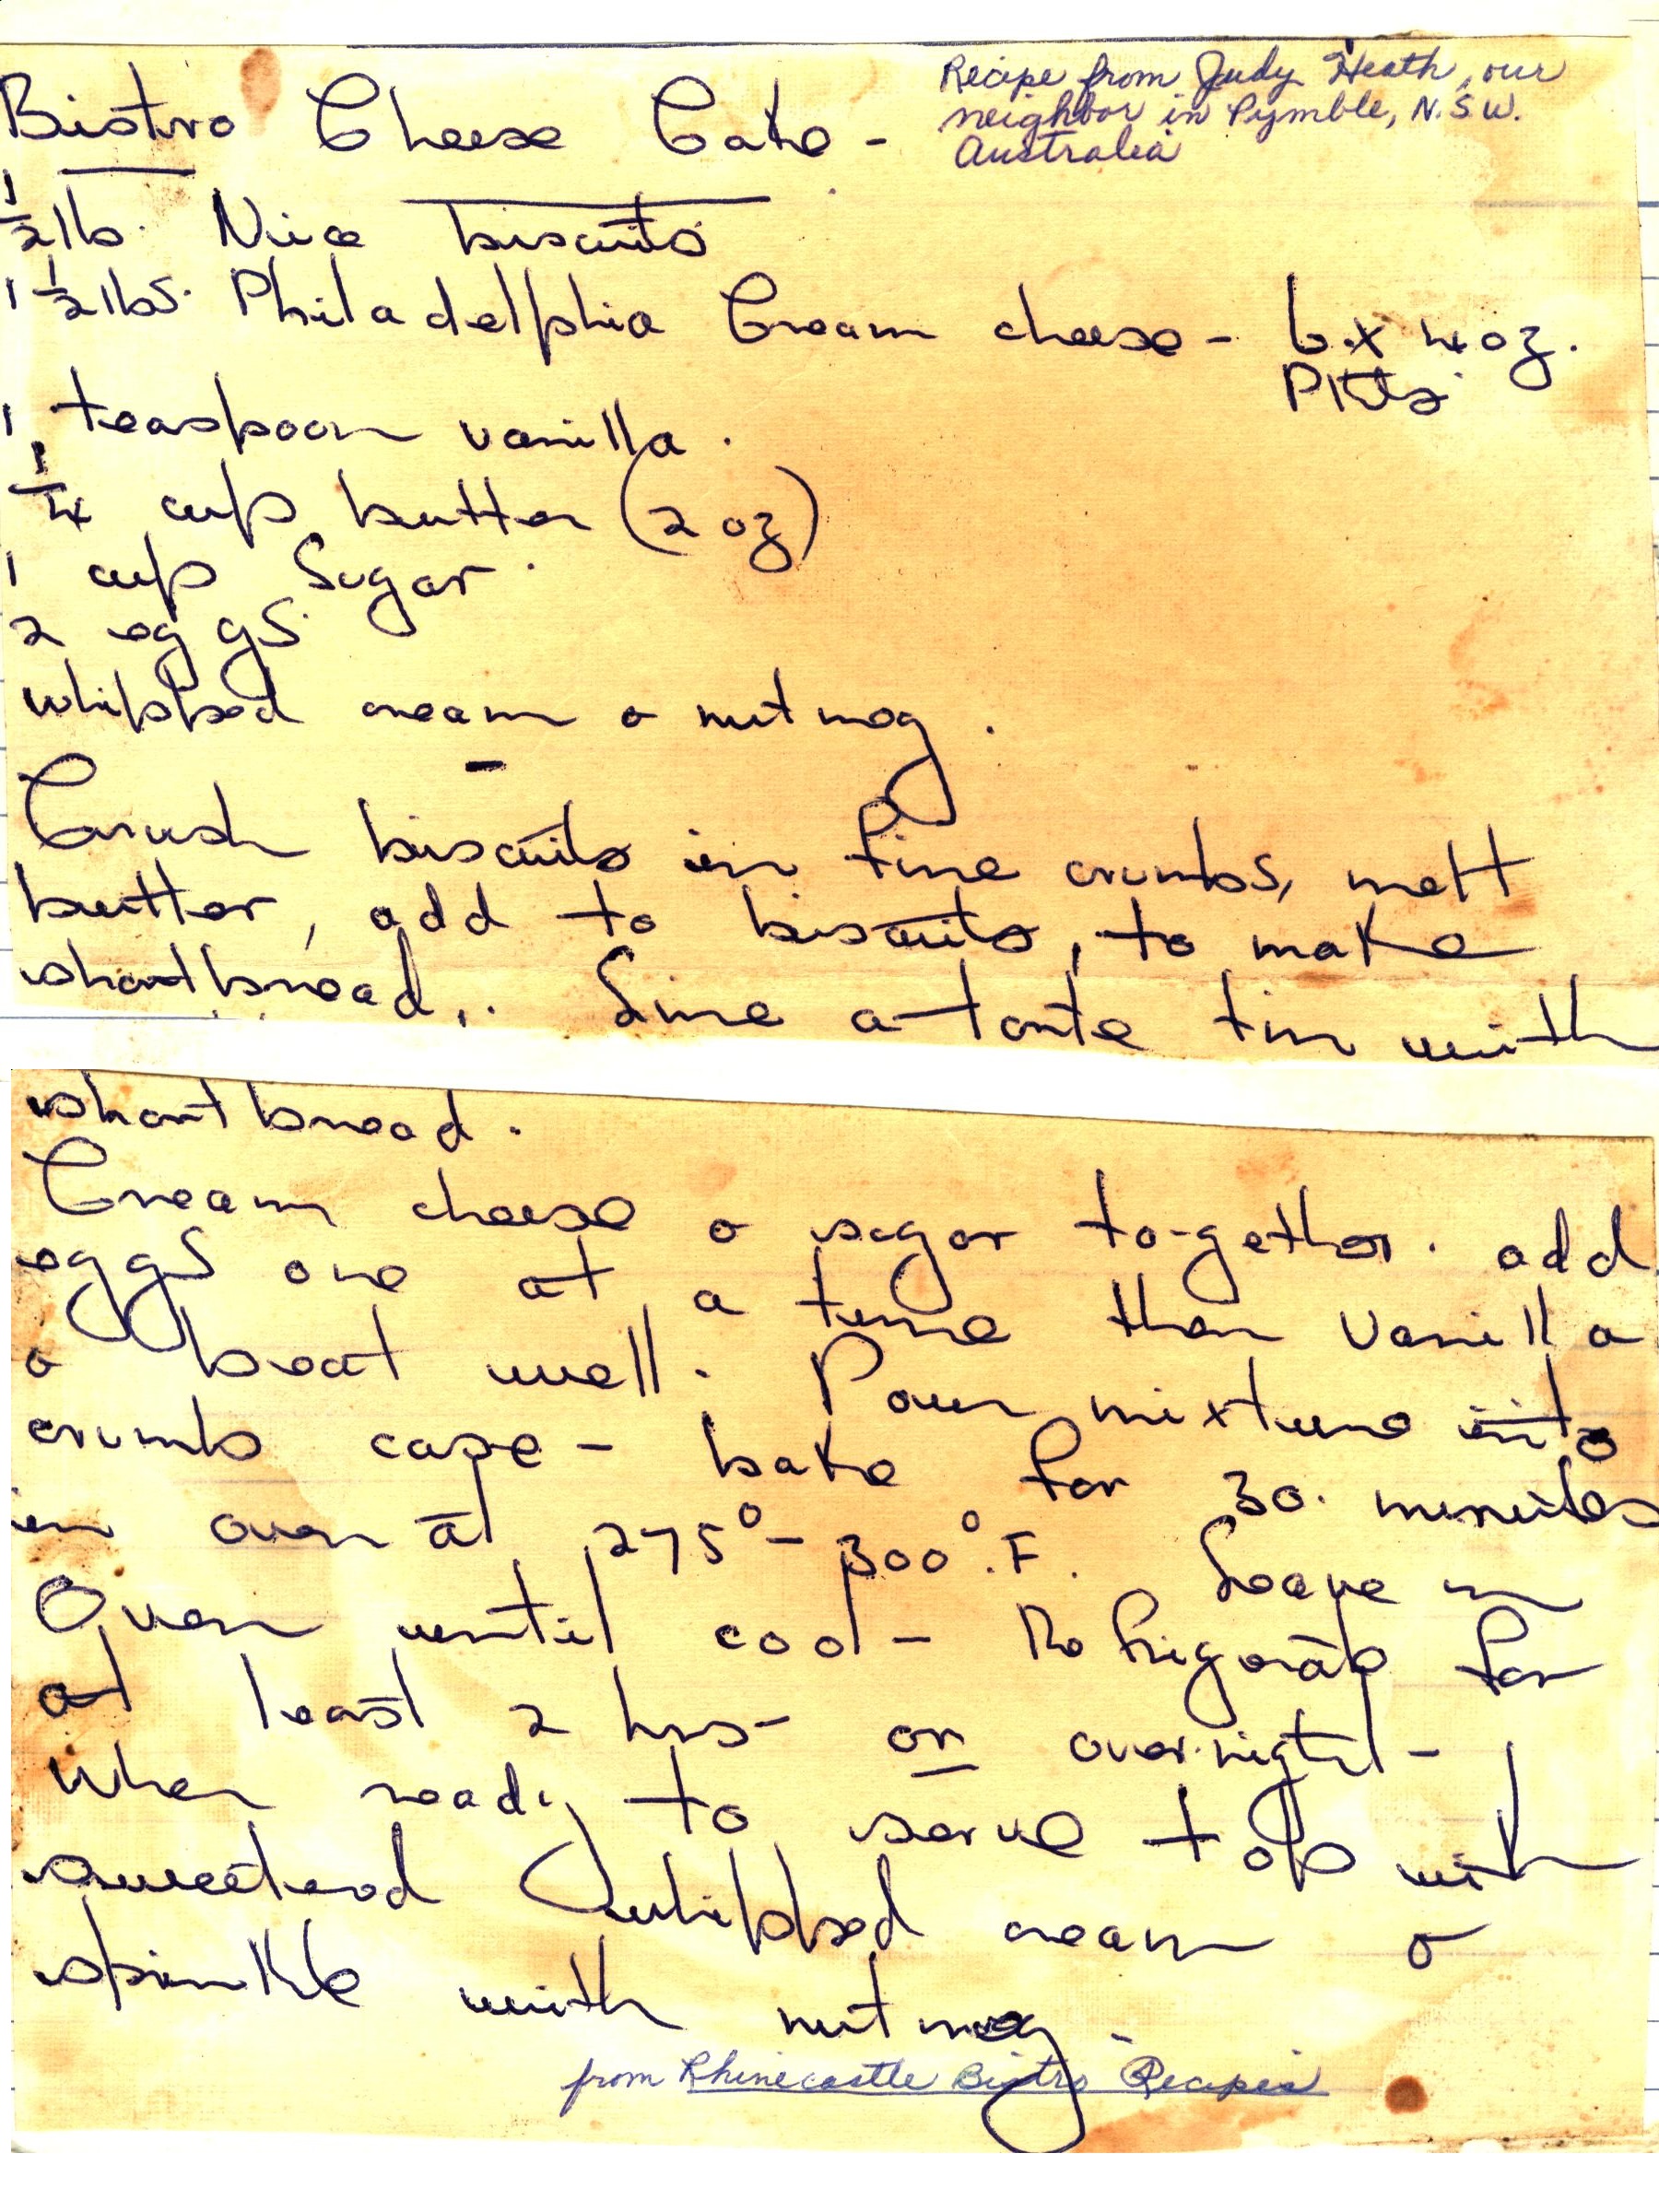 Bistro Cheese Cake -
Recipe from Judy Heath, our
neighbor in Pymble, N.S.W.
Australia
1/2 lb. Nice biscuits
1 1/2 lbs. Philadelphia Cream cheese - 6 x 4 oz.
Pkts
1 teaspoon vanilla.
1/4 cup butter (2 oz)
1 cup Sugar.
2 eggs.
whipped cream & nutmeg.
Crush biscuits in fine crumbs, melt
butter, add to biscuits, to make
shortbread. Line a torte tin with
shortbread.
Cream cheese & sugar together. add
eggs one at a time then vanilla
& beat well. Pour mixture into
crumb case - bake for 30 minutes
in oven at 275° - 300°.F. Leave in
Oven until cool - Refrigerate for
at least 2 hrs - or overnight -
When ready to serve top with
sweetened whipped cream &
sprinkle with nutmeg.
from Rhinecastle Bistro Recipes